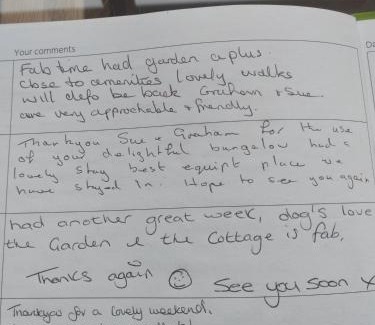 Your comments
Fab time had garden a plus.
close to amenities lovely walks
will defo be back Graham & Sue
are very approchable & friendly.
Thankyou Sue & Graham for the use
of your delightful bungalow had a
lovely stay best equipt place we
have stayed in. Hope to see you again
had another great week, dog's love
the Garden & the Cottage is fab,
Thanks again ☺ See you soon x
Thankyou for a lovely weekend.